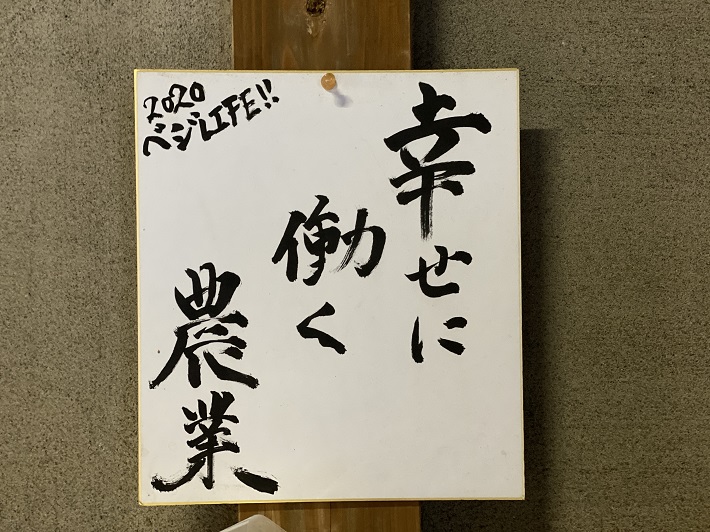 幸せに
働く
農業
2020
ベジLIFE!!